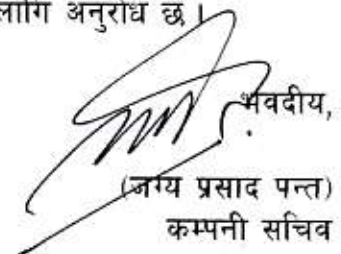 लागि अनुरोध छ।
भवदीय,
(जग्य प्रसाद पन्त)
कम्पनी सचिव